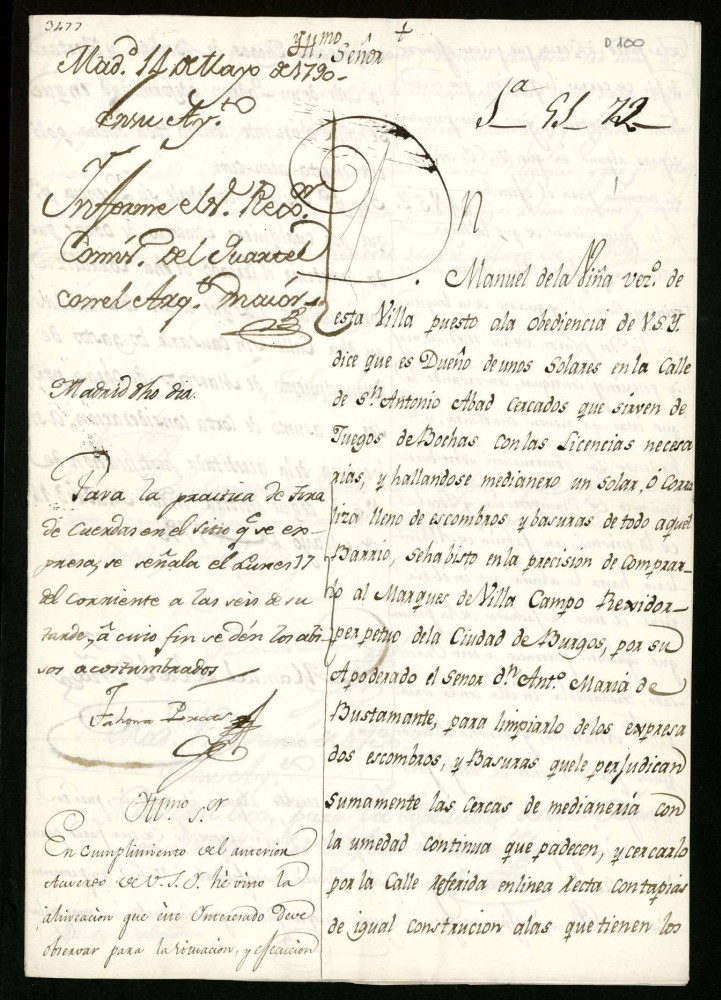 3477
D 100
+
Yllmo Señor
Madd. 14 de Mayo de 1790
En su Ayto.
1a 51 72
Informe el Sr. Regor.
Comisr. del Quartel
con el Arqto. maior
Madrid dho dia.
Para la practica de tira
de Cuerdas en el sitio q.e se ex-
presa, se señala el Lunes 17
del Corriente a las seis de su
tarde, â cuio fin se dén los abi-
sos acostumbrados
Yllmo. Sor.
En cumplimiento del anterior
Acuerdo de V.S.Y. hè visto la
alineacion que èste Interesado deve
observar para la situacion, y efecucion
Dn
Manuel de la Piña vezo. de
esta Villa puesto ala obediencia de V.S.Y.
dice que es Dueño de unos Solares en la Calle
de Sn. Antonio Abad cercados que sirven de
Juegos de Bochas con las Licencias necesa
rias, y hallandose medianero un solar, ó Corra
liza lleno de escombros y basuras de todo aquel
Barrio, seha bisto en la precision de comprar-
lo al Marques de Villa Campo Rexidor
perpetuo dela Ciudad de Burgos, por su
Apoderado el Señor dn. Anto. Maria de
Bustamante, para limpiarlo delos expresa
dos escombros, y Basuras quele perjudican
sumamente las cercas de medianería con
la umedad continua que padecen, y cercarlo
por la Calle referida en linea recta con tapias
de igual construcion alas que tienen los